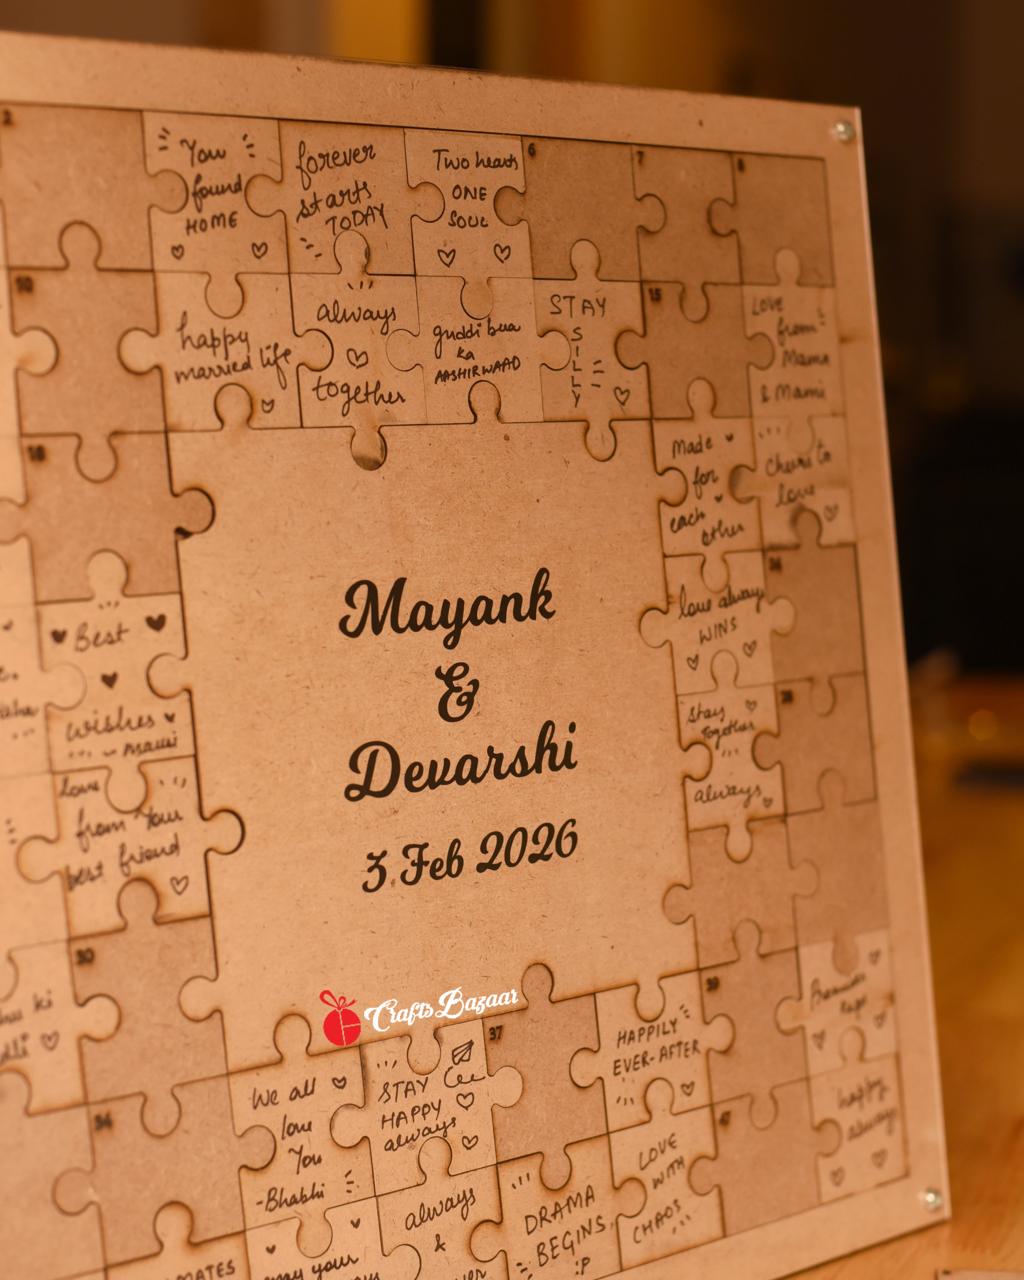 2
You
found
HOME
forever
starts
TODAY
Two hearts
ONE
SOUL
6
7
8
10
happy
married life
always
together
guddi bua
ka
AASHIRWAAD
STAY
S
I
L
L
Y
15
Love
from
Mama
& Mami
18
Made
for
each
other
Cheers to
love
Best
wishes
- mausi
love always
WINS
26
Stay
Together
always
28
love
from Your
best friend
Mayank
&
Devarshi
3 Feb 2026
30
ki
Crafts Bazaar
We all
love
You
-Bhabhi
STAY
HAPPY
always
37
HAPPILY
EVER-AFTER
39
happy
always
always
&
DRAMA
BEGINS
:P
LOVE
WITH
CHAOS
47
MATES
your